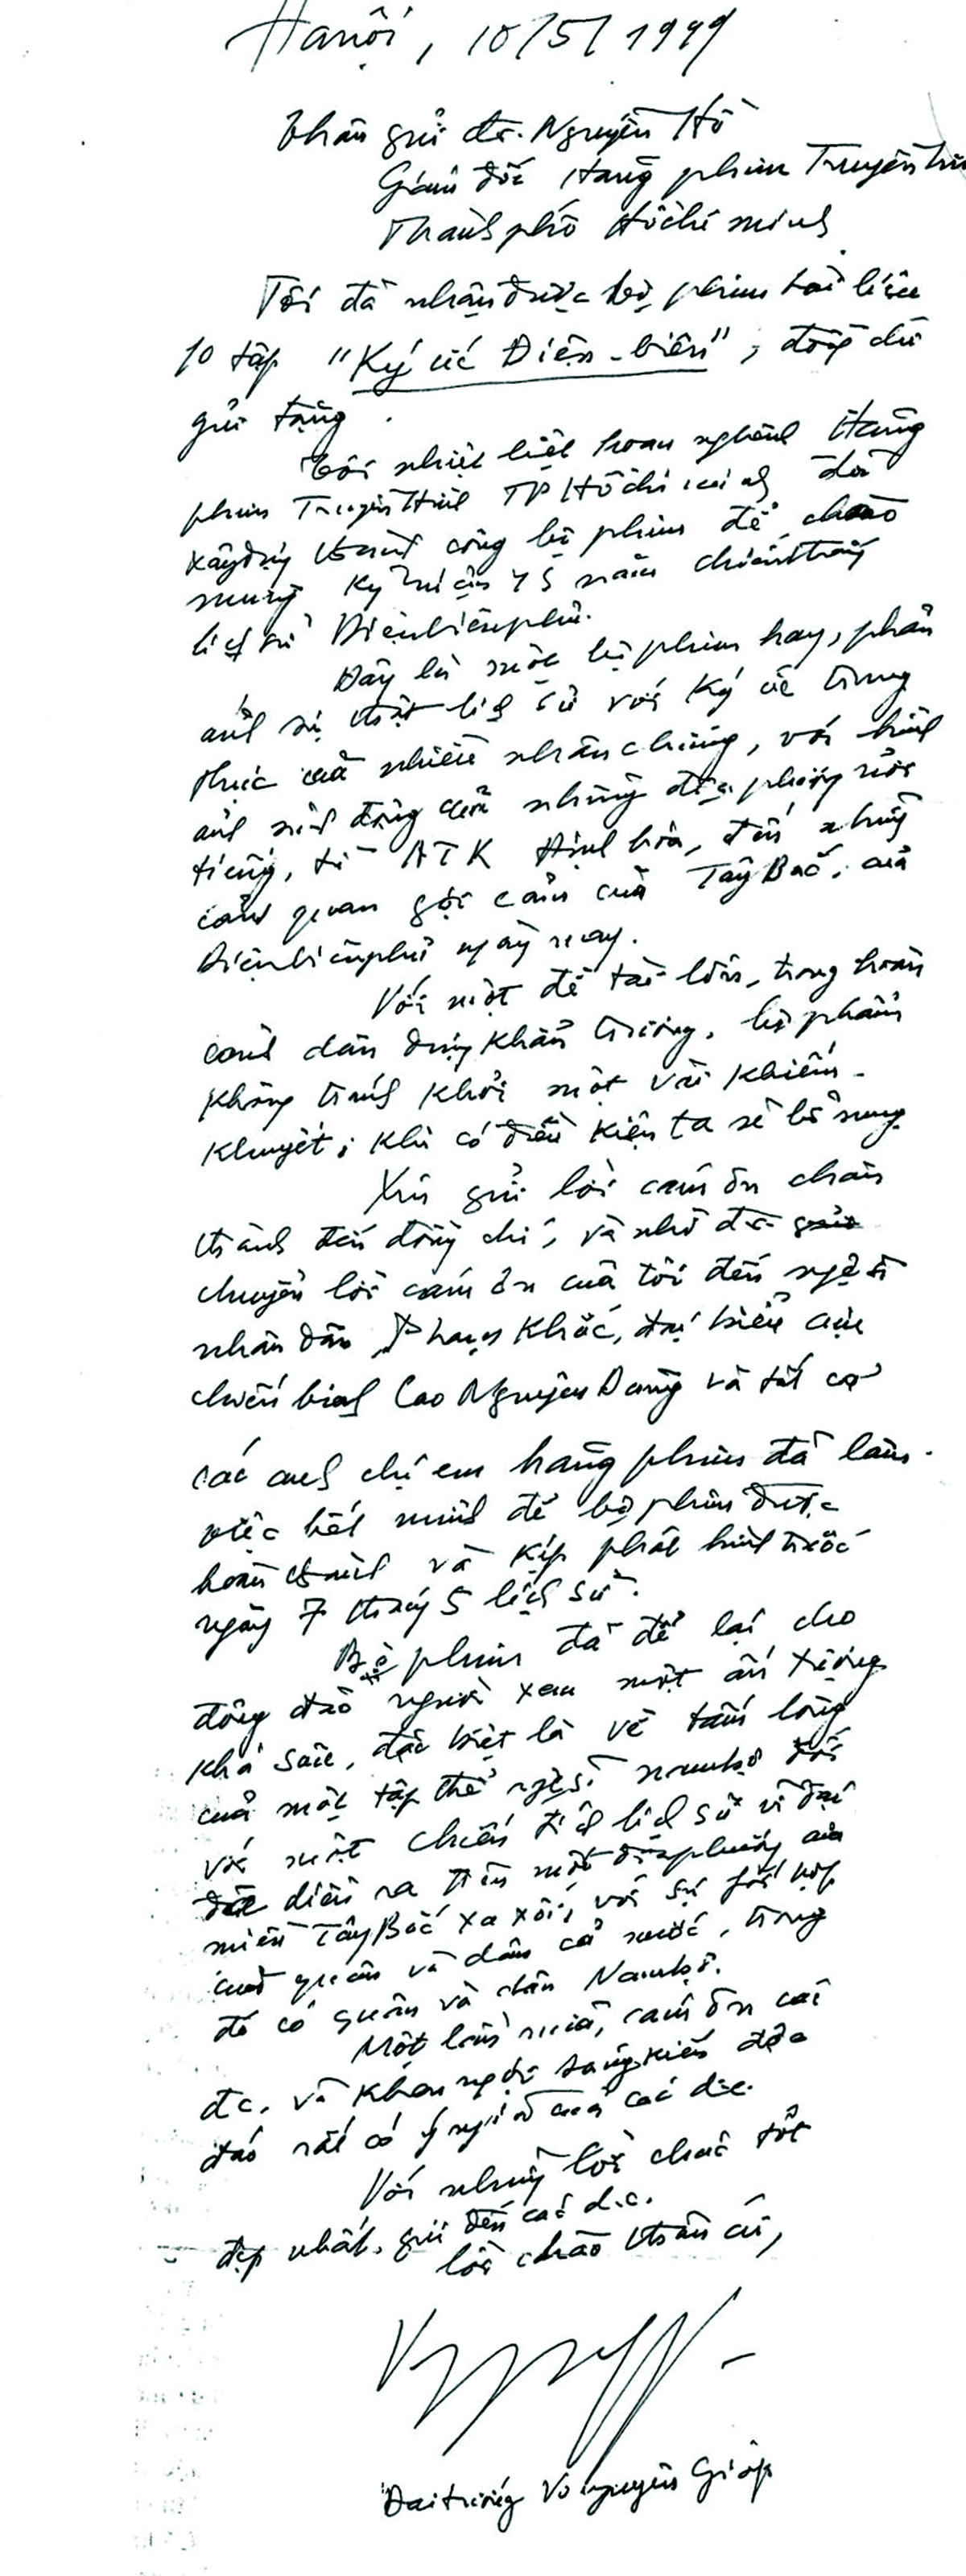 Hà nội, 10/5/1999
Thân gửi đ/c. Nguyễn Hồ
Giám đốc Hãng phim Truyền hì
Thành phố Hồ chí minh
Tôi đã nhận được bộ phim tài liệu
10 tập "Ký ức Điện-biên", đồng chí
gửi tặng.
Tôi nhiệt liệt hoan nghênh Hãng
phim Truyền Hình TP Hồ chí minh đã
xây dựng thành công bộ phim để chào
mừng kỷ niệm 45 năm chiến thắng
lịch sử Điện biên phủ.
Đây là một bộ phim hay, phản
ánh sự thật lịch sử với ký ức trung
thực của nhiều nhân chứng, với hình
ảnh sinh động của những địa phương nổi
tiếng, từ ATK Định hóa, đến những
cảnh quan gợi cảm của Tây Bắc, của
Điện biên phủ ngày nay.
Với một đề tài lớn, trong hoàn
cảnh dàn dựng khẩn trương, bộ phim
không tránh khỏi một vài khiếm
khuyết; khi có điều kiện ta sẽ bổ sung
Xin gửi lời cám ơn chân
thành đến đồng chí, và nhờ đ/c
chuyển lời cám ơn của tôi đến nghệ sĩ
nhân dân Phạm Khắc, đại biểu cựu
chiến binh Cao Nguyên Dũng và tất cả
các anh chị em hãng phim đã làm
việc hết mình để bộ phim được
hoàn thành và kịp phát hình trước
ngày 7 tháng 5 lịch sử.
Bộ phim đã để lại cho
đông đảo người xem một ấn tượng
khá sâu, đặc biệt là về tấm lòng
của một tập thể nghệ sĩ nam bộ đối
với một chiến tích lịch sử vĩ đại
diễn ra trên một địa phương của
miền Tây Bắc xa xôi, với sự phối hợp
của quân và dân cả nước, trong
đó có quân và dân Nam bộ.
Một lần nữa, cám ơn các
đ.c. và khen ngợi sáng kiến độc
đáo rất có ý nghĩa của các đ.c.
Với những lời chúc tốt
đẹp nhất, gửi đến các đ.c.
lời chào thân ái,
Đại tướng Võ nguyên Giáp